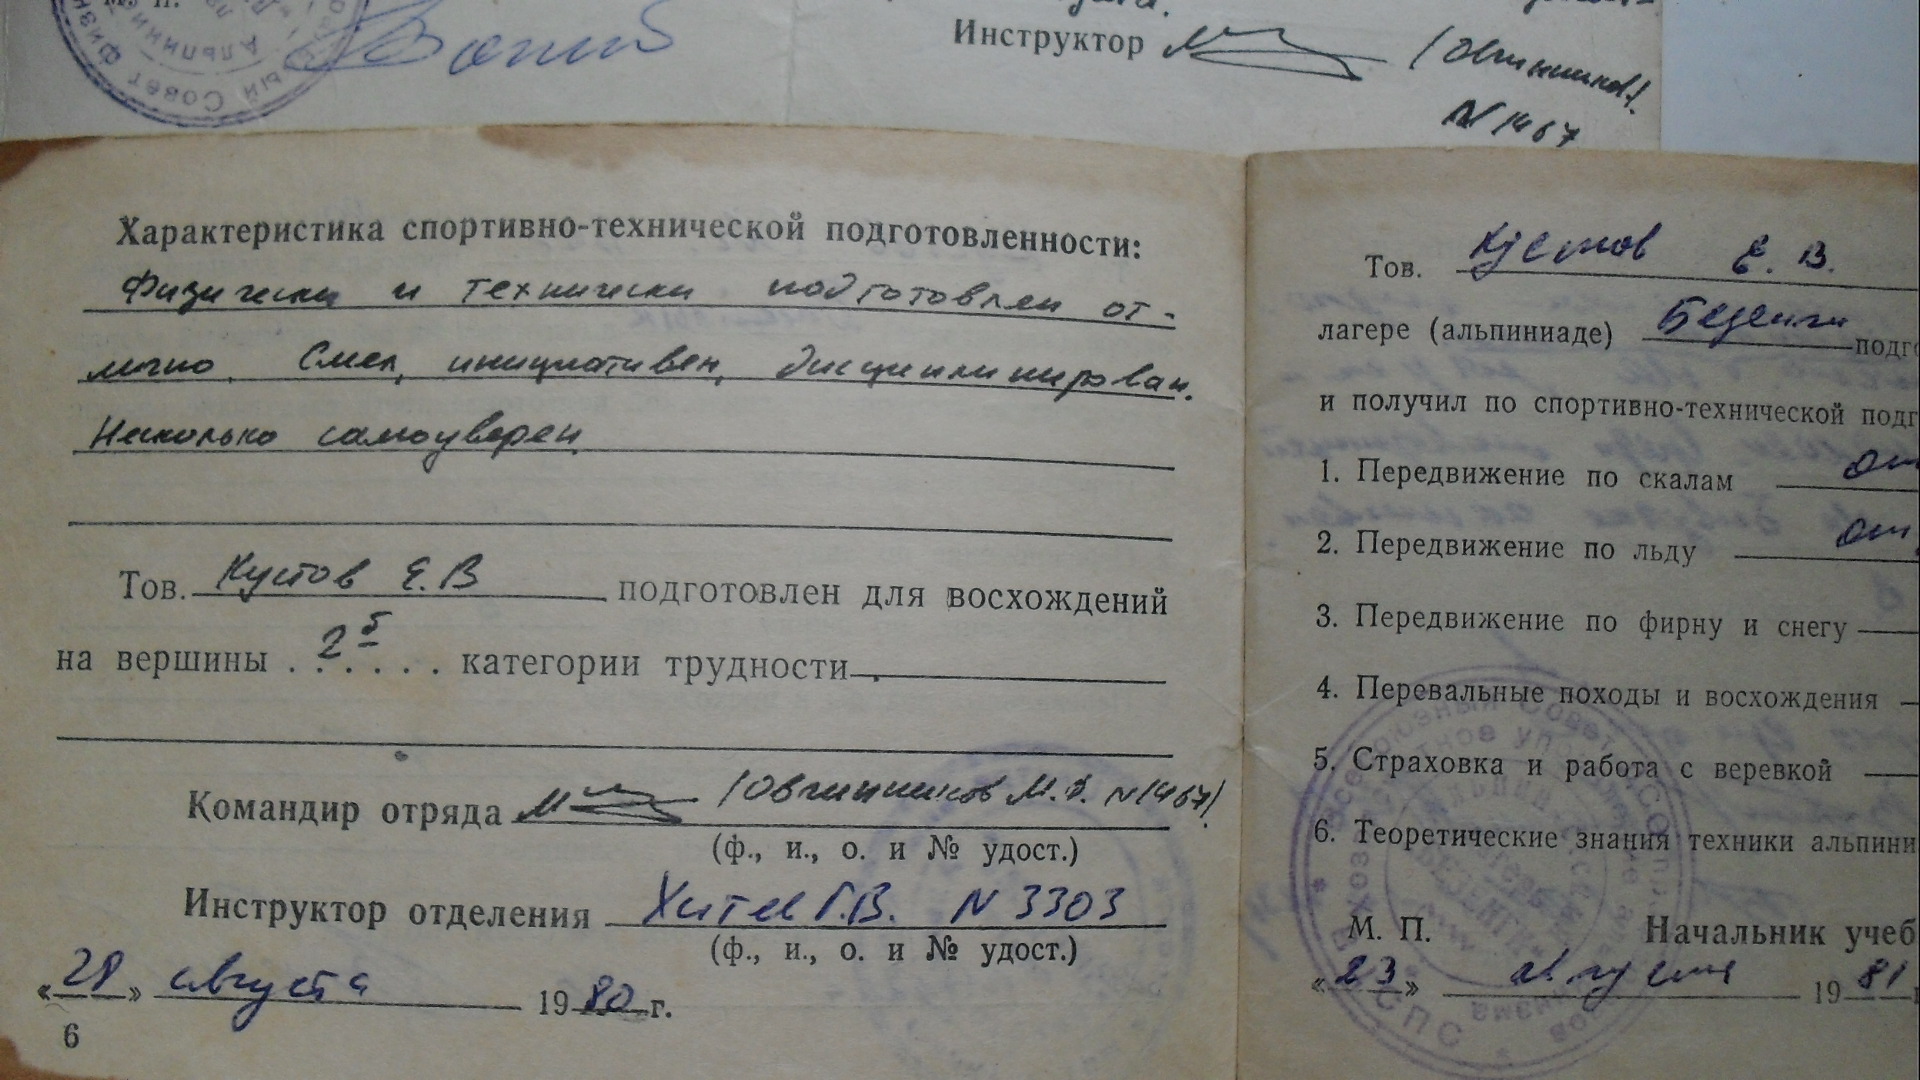 М. П.
Инструктор (Овчинников).
N 1467
Характеристика спортивно-технической подготовленности:
Физически и технически подготовлен от-
лично. Смел, инициативен, дисциплинирован.
Несколько самоуверен.
Тов. Кустов Е.В подготовлен для восхождений
на вершины . 2б . . . . категории трудности
Командир отряда (Овчинников М.Ф. N 1467)
(ф., и., о. и № удост.)
Инструктор отделения Хитев Г.В. N 3303
(ф., и., о. и № удост.)
«28» августа 1980 г.
6
Тов. Кустов Е. В.
лагере (альпиниаде) Безенги подго
и получил по спортивно-технической подг
1. Передвижение по скалам от
2. Передвижение по льду от
3. Передвижение по фирну и снегу
4. Перевальные походы и восхождения
5. Страховка и работа с веревкой
6. Теоретические знания техники альпини
М. П. Начальник учеб
«23» августа 1981 г